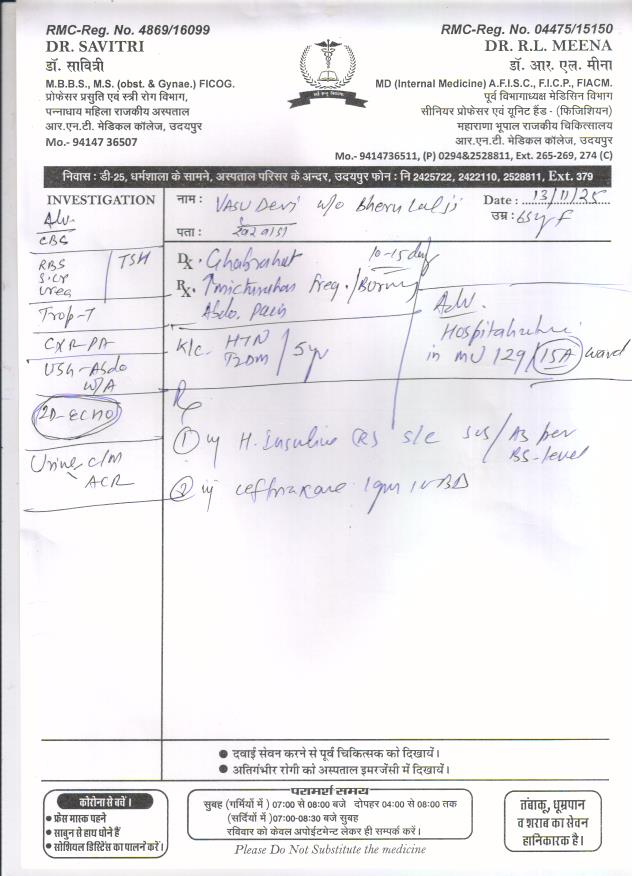 RMC-Reg. No. 4869/16099
DR. SAVITRI
डॉ. सावित्री
M.B.B.S., M.S. (obst. & Gynae.) FICOG.
प्रोफेसर प्रसुति एवं स्त्री रोग विभाग,
पन्नाधाय महिला राजकीय अस्पताल
आर.एन.टी. मेडिकल कॉलेज, उदयपुर
Mo.- 94147 36507
RMC-Reg. No. 04475/15150
DR. R.L. MEENA
डॉ. आर. एल. मीना
MD (Internal Medicine) A.F.I.S.C., F.I.C.P., FIACM.
पूर्व विभागाध्यक्ष मेडिसिन विभाग
सीनियर प्रोफेसर एवं यूनिट हैंड - (फिजिशियन)
महाराणा भूपाल राजकीय चिकित्सालय
आर.एन.टी. मेडिकल कॉलेज, उदयपुर
Mo.- 9414736511, (P) 0294&2528811, Ext. 265-269, 274 (C)
निवास : डी-25, धर्मशाला के सामने, अस्पताल परिसर के अन्दर, उदयपुर फोन : नि 2425722, 2422110, 2528811, Ext. 379
INVESTIGATION
Adv.
CBC
RBS
S. Cr
Urea
TSH
Trop-T
CXR-PA
USG-Abdo
W/A
2D-ECHO
Urine c/m
ACR
नाम : Vasu Devi w/o Bheru Lal ji
Date : 13/11/25
पता :
उम्र : 65y F
Dx. Ghabrahat 10-15 day
Rx. ↑ micturation freq. / Burning
Abdo. Pain
K/c. HTN
T2DM / 5yr
Adv.
Hospitalization
in MU 129/ 15A ward
Rx
① inj H. Insuline (R) s/c SOS / As per
BS-level
② inj ceftriaxone 1gm IV BD
● दवाई सेवन करने से पूर्व चिकित्सक को दिखायें।
● अतिगंभीर रोगी को अस्पताल इमरजेंसी में दिखायें।
कोरोना से बचें।
● फ्रेस मास्क पहने
● साबुन से हाथ धोने हैं
● सोशियल डिस्टेंस का पालन करें।
परामर्श समय
सुबह (गर्मियों में ) 07:00 से 08:00 बजे दोपहर 04:00 से 08:00 तक
(सर्दियों में )07:00-08:30 बजे सुबह
रविवार को केवल अपोईटमेन्ट लेकर ही सम्पर्क करें।
Please Do Not Substitute the medicine
तंबाकू, धूम्रपान
व शराब का सेवन
हानिकारक है।